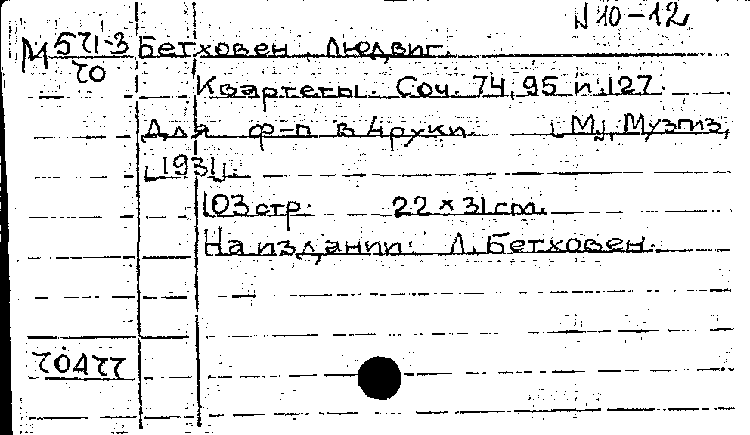 N 10-12
М 571-3 Бетховен, Людвиг.
70
Квартеты. Соч. 74, 95 и 127.
Для ф-п в 4 руки. [М], Музгиз,
[1931].
103 стр. 22 × 31 cm.
На издании: Л. Бетховен.
70477